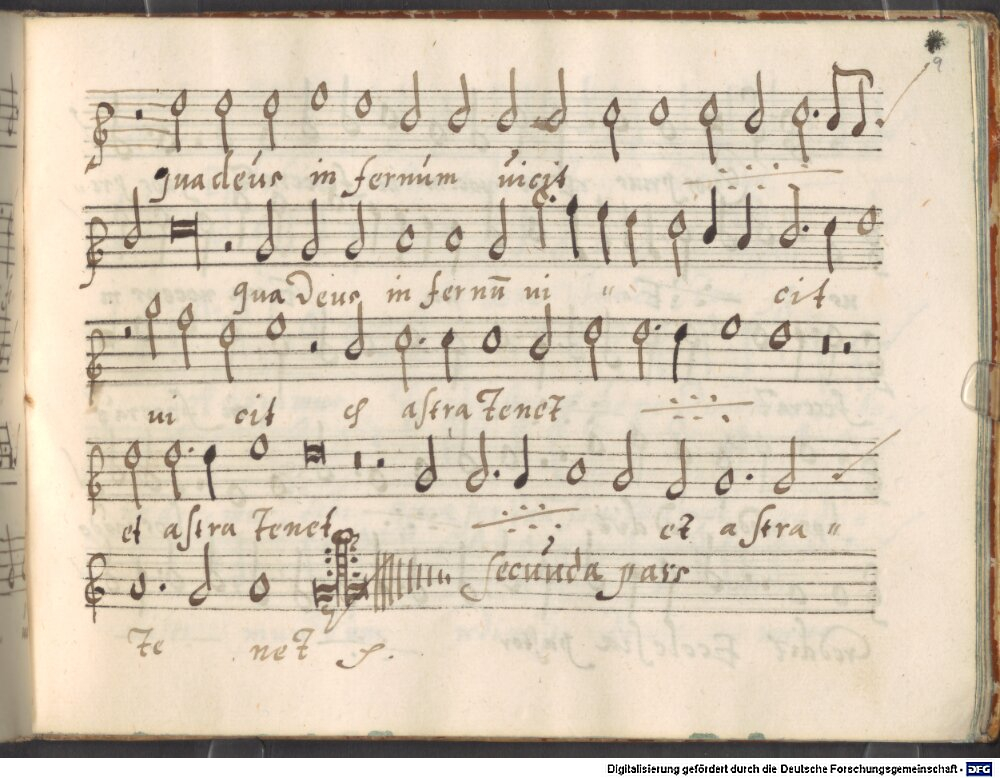 9
qua deus in fernum vicit
qua deus in fernū vi " cit
vi cit et astra tenet
et astra tenet et astra "
Secunda pars
te net
Digitalisierung gefördert durch die Deutsche Forschungsgemeinschaft - DFG